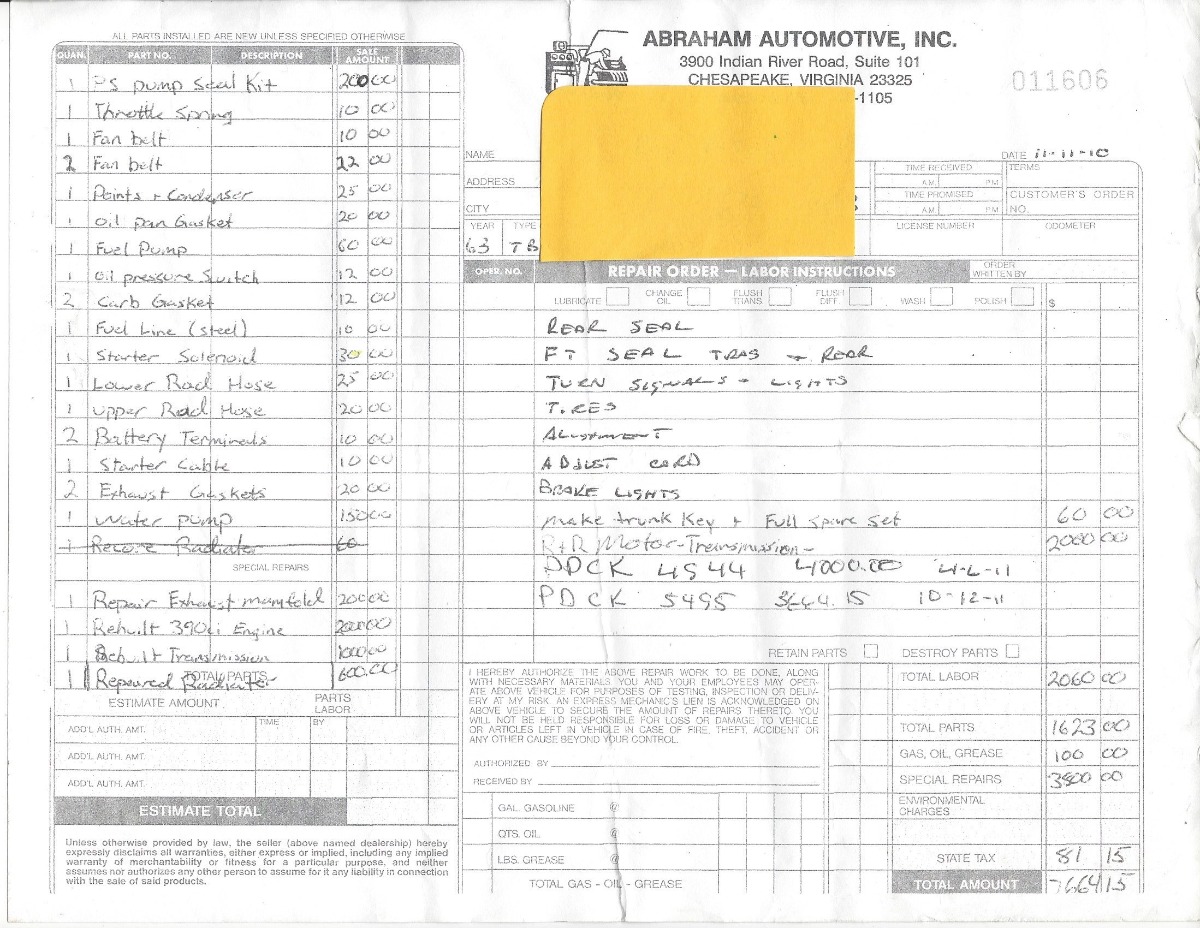 ALL PARTS INSTALLED ARE NEW UNLESS SPECIFIED OTHERWISE
QUAN. PART NO. DESCRIPTION SALE AMOUNT
1 PS pump seal Kit 200 00
1 Throttle Spring 10 00
1 Fan belt 10 00
2 Fan belt 22 00
1 Points + Condenser 25 00
1 Oil pan Gasket 20 00
1 Fuel Pump 60 00
1 Oil pressure Switch 12 00
2 Carb Gasket 12 00
1 Fuel Line (steel) 10 00
1 Starter Solenoid 30 00
1 Lower Rad Hose 25 00
1 upper Rad Hose 20 00
2 Battery Terminals 10 00
1 Starter Cable 10 00
2 Exhaust Gaskets 20 00
1 Water pump 150 00
1 Recore Radiator 60
SPECIAL REPAIRS
1 Repair Exhaust manifold 200 00
1 Rebuilt 390ci Engine 2000 00
1 Rebuilt Transmission 1000 00
TOTAL PARTS
1 Repaired Radiator 600.00
ESTIMATE AMOUNT PARTS LABOR
ADD'L AUTH. AMT. TIME BY
ADD'L AUTH. AMT.
ADD'L AUTH. AMT.
ESTIMATE TOTAL
Unless otherwise provided by law, the seller (above named dealership) hereby
expressly disclaims all warranties, either express or implied, including any implied
warranty of merchantability or fitness for a particular purpose, and neither
assumes nor authorizes any other person to assume for it any liability in connection
with the sale of said products.
ABRAHAM AUTOMOTIVE, INC.
3900 Indian River Road, Suite 101
CHESAPEAKE, VIRGINIA 23325
-1105
011606
NAME
DATE 11-11-10
ADDRESS
TIME RECEIVED
A.M. P.M.
TERMS
CITY
TIME PROMISED
A.M. P.M.
CUSTOMER'S ORDER NO.
YEAR TYPE LICENSE NUMBER ODOMETER
63 TB
OPER. NO. REPAIR ORDER — LABOR INSTRUCTIONS ORDER WRITTEN BY
LUBRICATE CHANGE OIL FLUSH TRANS. FLUSH DIFF. WASH POLISH $
REAR SEAL
FT SEAL TRAS + REAR
TURN SIGNALS + LIGHTS
TIRES
ALIGNMENT
ADJUST CARB
BRAKE LIGHTS
make trunk Key + Full Spare Set 60 00
R+R Motor-Transmission- 2000 00
PDCK 4544 4000.00 4-6-11
PDCK 5495 3664.15 10-12-11
RETAIN PARTS DESTROY PARTS
I HEREBY AUTHORIZE THE ABOVE REPAIR WORK TO BE DONE, ALONG
WITH NECESSARY MATERIALS. YOU AND YOUR EMPLOYEES MAY OPER-
ATE ABOVE VEHICLE FOR PURPOSES OF TESTING, INSPECTION OR DELIV-
ERY AT MY RISK. AN EXPRESS MECHANIC'S LIEN IS ACKNOWLEDGED ON
ABOVE VEHICLE TO SECURE THE AMOUNT OF REPAIRS THERETO. YOU
WILL NOT BE HELD RESPONSIBLE FOR LOSS OR DAMAGE TO VEHICLE
OR ARTICLES LEFT IN VEHICLE IN CASE OF FIRE, THEFT, ACCIDENT OR
ANY OTHER CAUSE BEYOND YOUR CONTROL.
AUTHORIZED BY
RECEIVED BY
GAL. GASOLINE @
QTS. OIL @
LBS. GREASE @
TOTAL GAS - OIL - GREASE
TOTAL LABOR 2060 00
TOTAL PARTS 1623 00
GAS, OIL, GREASE 100 00
SPECIAL REPAIRS 3800 00
ENVIRONMENTAL CHARGES
STATE TAX 81 15
TOTAL AMOUNT 7664 15